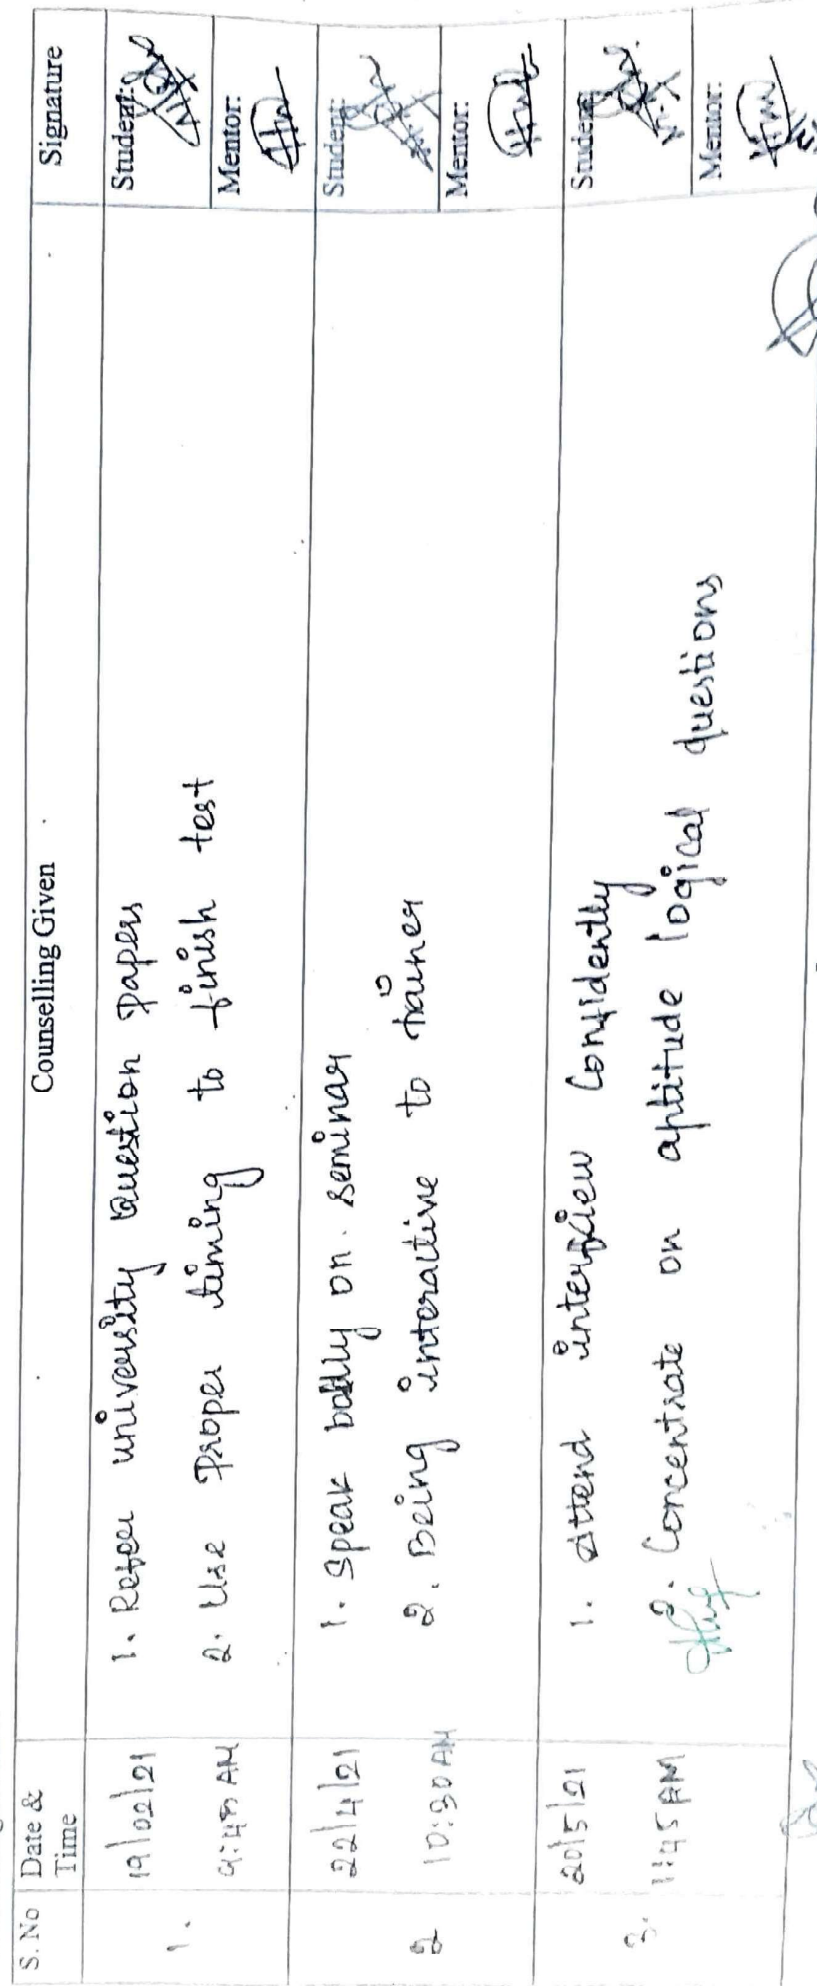 S. No Date & Time Counselling Given Signature
1. 19/02/21 9:45 AM
1. Refer university Question papers
2. Use Proper timing to finish test
Student:
Mentor:
2 22/4/21 10:30 AM
1. Speak boldly on. Seminar
2. Being interactive to trainer
Student:
Mentor:
3. 20/5/21 1:45 PM
1. Attend interview Confidently
2. Concentrate on aptitude logical questions
Student:
Mentor: